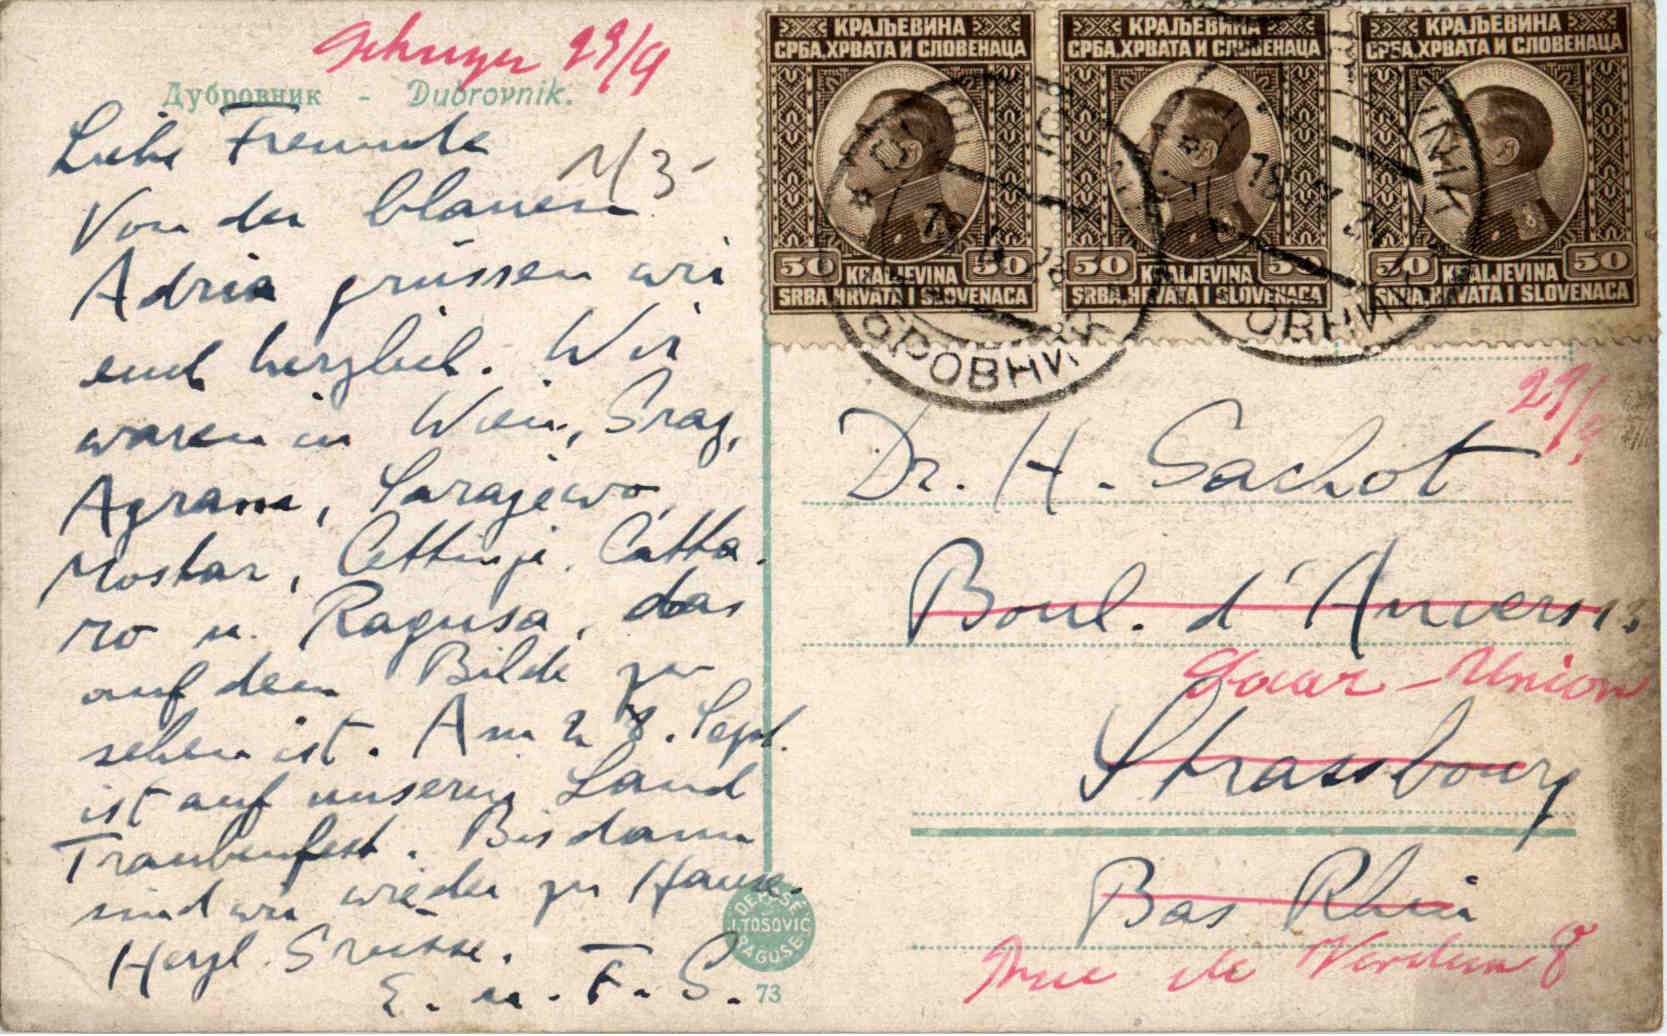 29/9
Дубровник - Dubrovnik.
Liebe Freunde
N/3-
Von der blauen
Adria grüssen wir
euch herzlich. Wir
waren in Wien, Graz,
Agram, Sarajewo,
Mostar, Cettinje, Catta-
ro u. Ragusa, das
auf dem Bilde zu
sehen ist. Am 28. Sept.
ist auf unserm Land
Traubenfest. Bis dann
sind wir wieder zu Hause.
Herzl. Grüsse.
E. u. F. G.
КРАЉЕВИНА
СРБА, ХРВАТА И СЛОВЕНАЦА
50 KRALJEVINA 50
SRBA, HRVATA I SLOVENACA
КРАЉЕВИНА
СРБА, ХРВАТА И СЛОВЕНАЦА
50 KRALJEVINA 50
SRBA, HRVATA I SLOVENACA
КРАЉЕВИНА
СРБА, ХРВАТА И СЛОВЕНАЦА
50 KRALJEVINA 50
SRBA, HRVATA I SLOVENACA
29/9
Dr. H. Sachot
Boul. d'Anvers
Saar-Union
Strassbourg
Bas Rhin
rue de Verdun 8
J. TOŠOVIĆ
RAGUSE
73